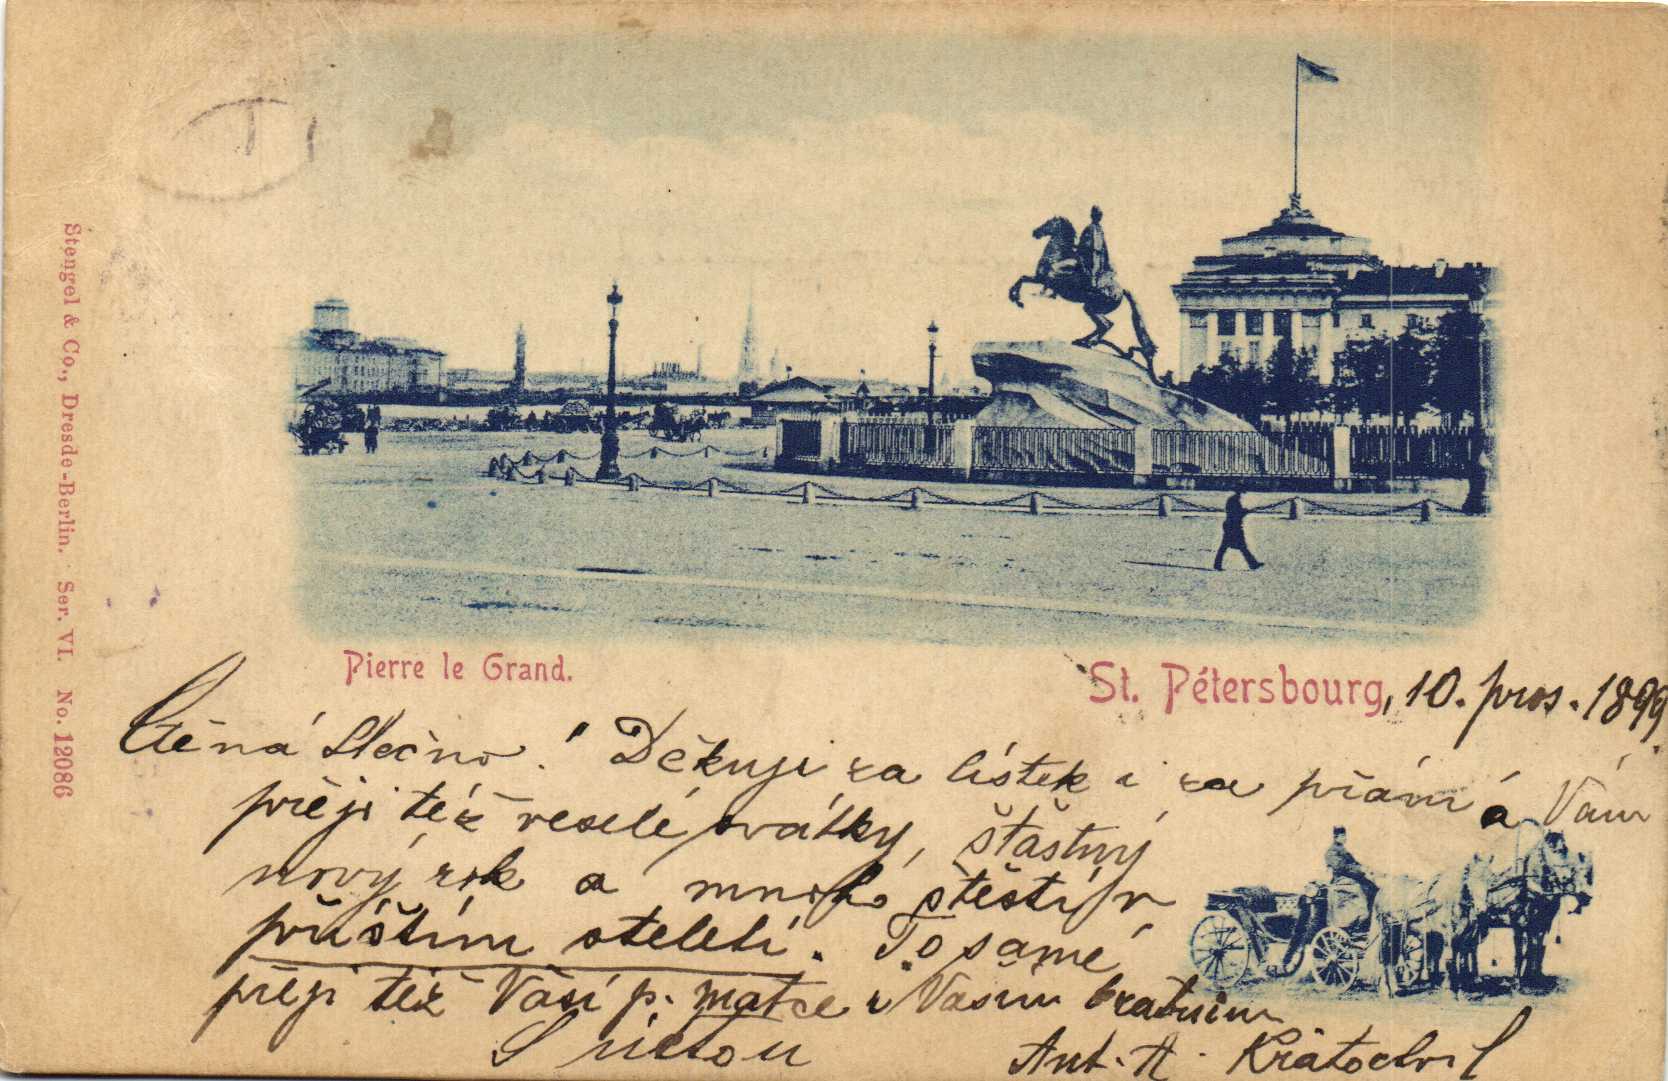 Stengel & Co., Dresde-Berlin. Ser. VI. No. 12086
Pierre le Grand.
St. Pétersbourg, 10. pros. 1899.
Ctěná Slečno! Děkuji za lístek i za přání a Vám
přeji též veselé svátky, šťastný
nový rok a mnoho štěstí v
příštím století. To samé
přeji též Vaší p. matce i Vašim bratrům
S úctou
Ant. A. Kratochvil